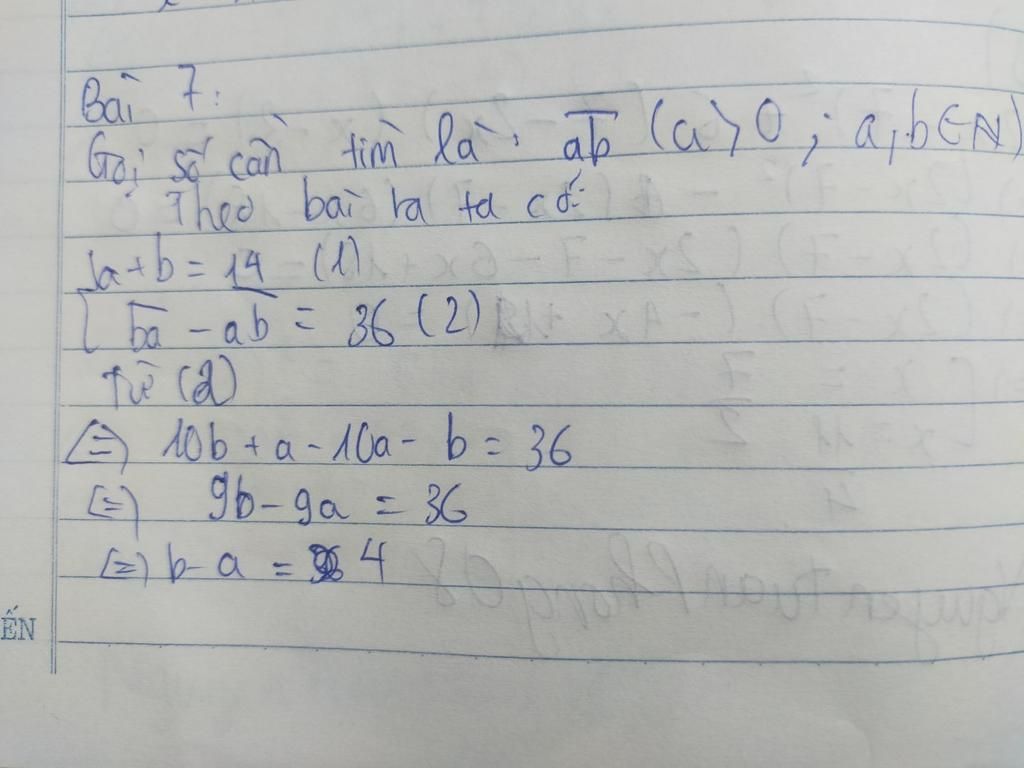 Bài 7:
Gọi số cần tìm là: ab (a > 0 ; a,b ∈ N)
Theo bài ra ta có:
a + b = 14 (1)
ba - ab = 36 (2)
từ (2)
(=) 10b + a - 10a - b = 36
(=) 9b - 9a = 36
(=) b - a = 4
ẾN